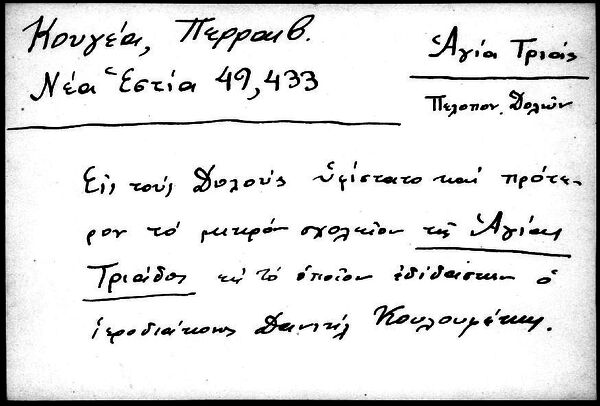 Κουγέα, Περραιβ.
Νέα Ἑστία 49,433
Ἁγία Τριάς
Πελοπον. Δολῶν
Εἰς τοὺς Δολοὺς ὑφίστατο καὶ πρότε-
ρον τὸ μικρὸν σχολεῖον τῆς Ἁγίας
Τριάδος εἰς τὸ ὁποῖον ἐδίδασκεν ὁ
ἱεροδιάκονος Δανιὴλ Κουλουμέτης.